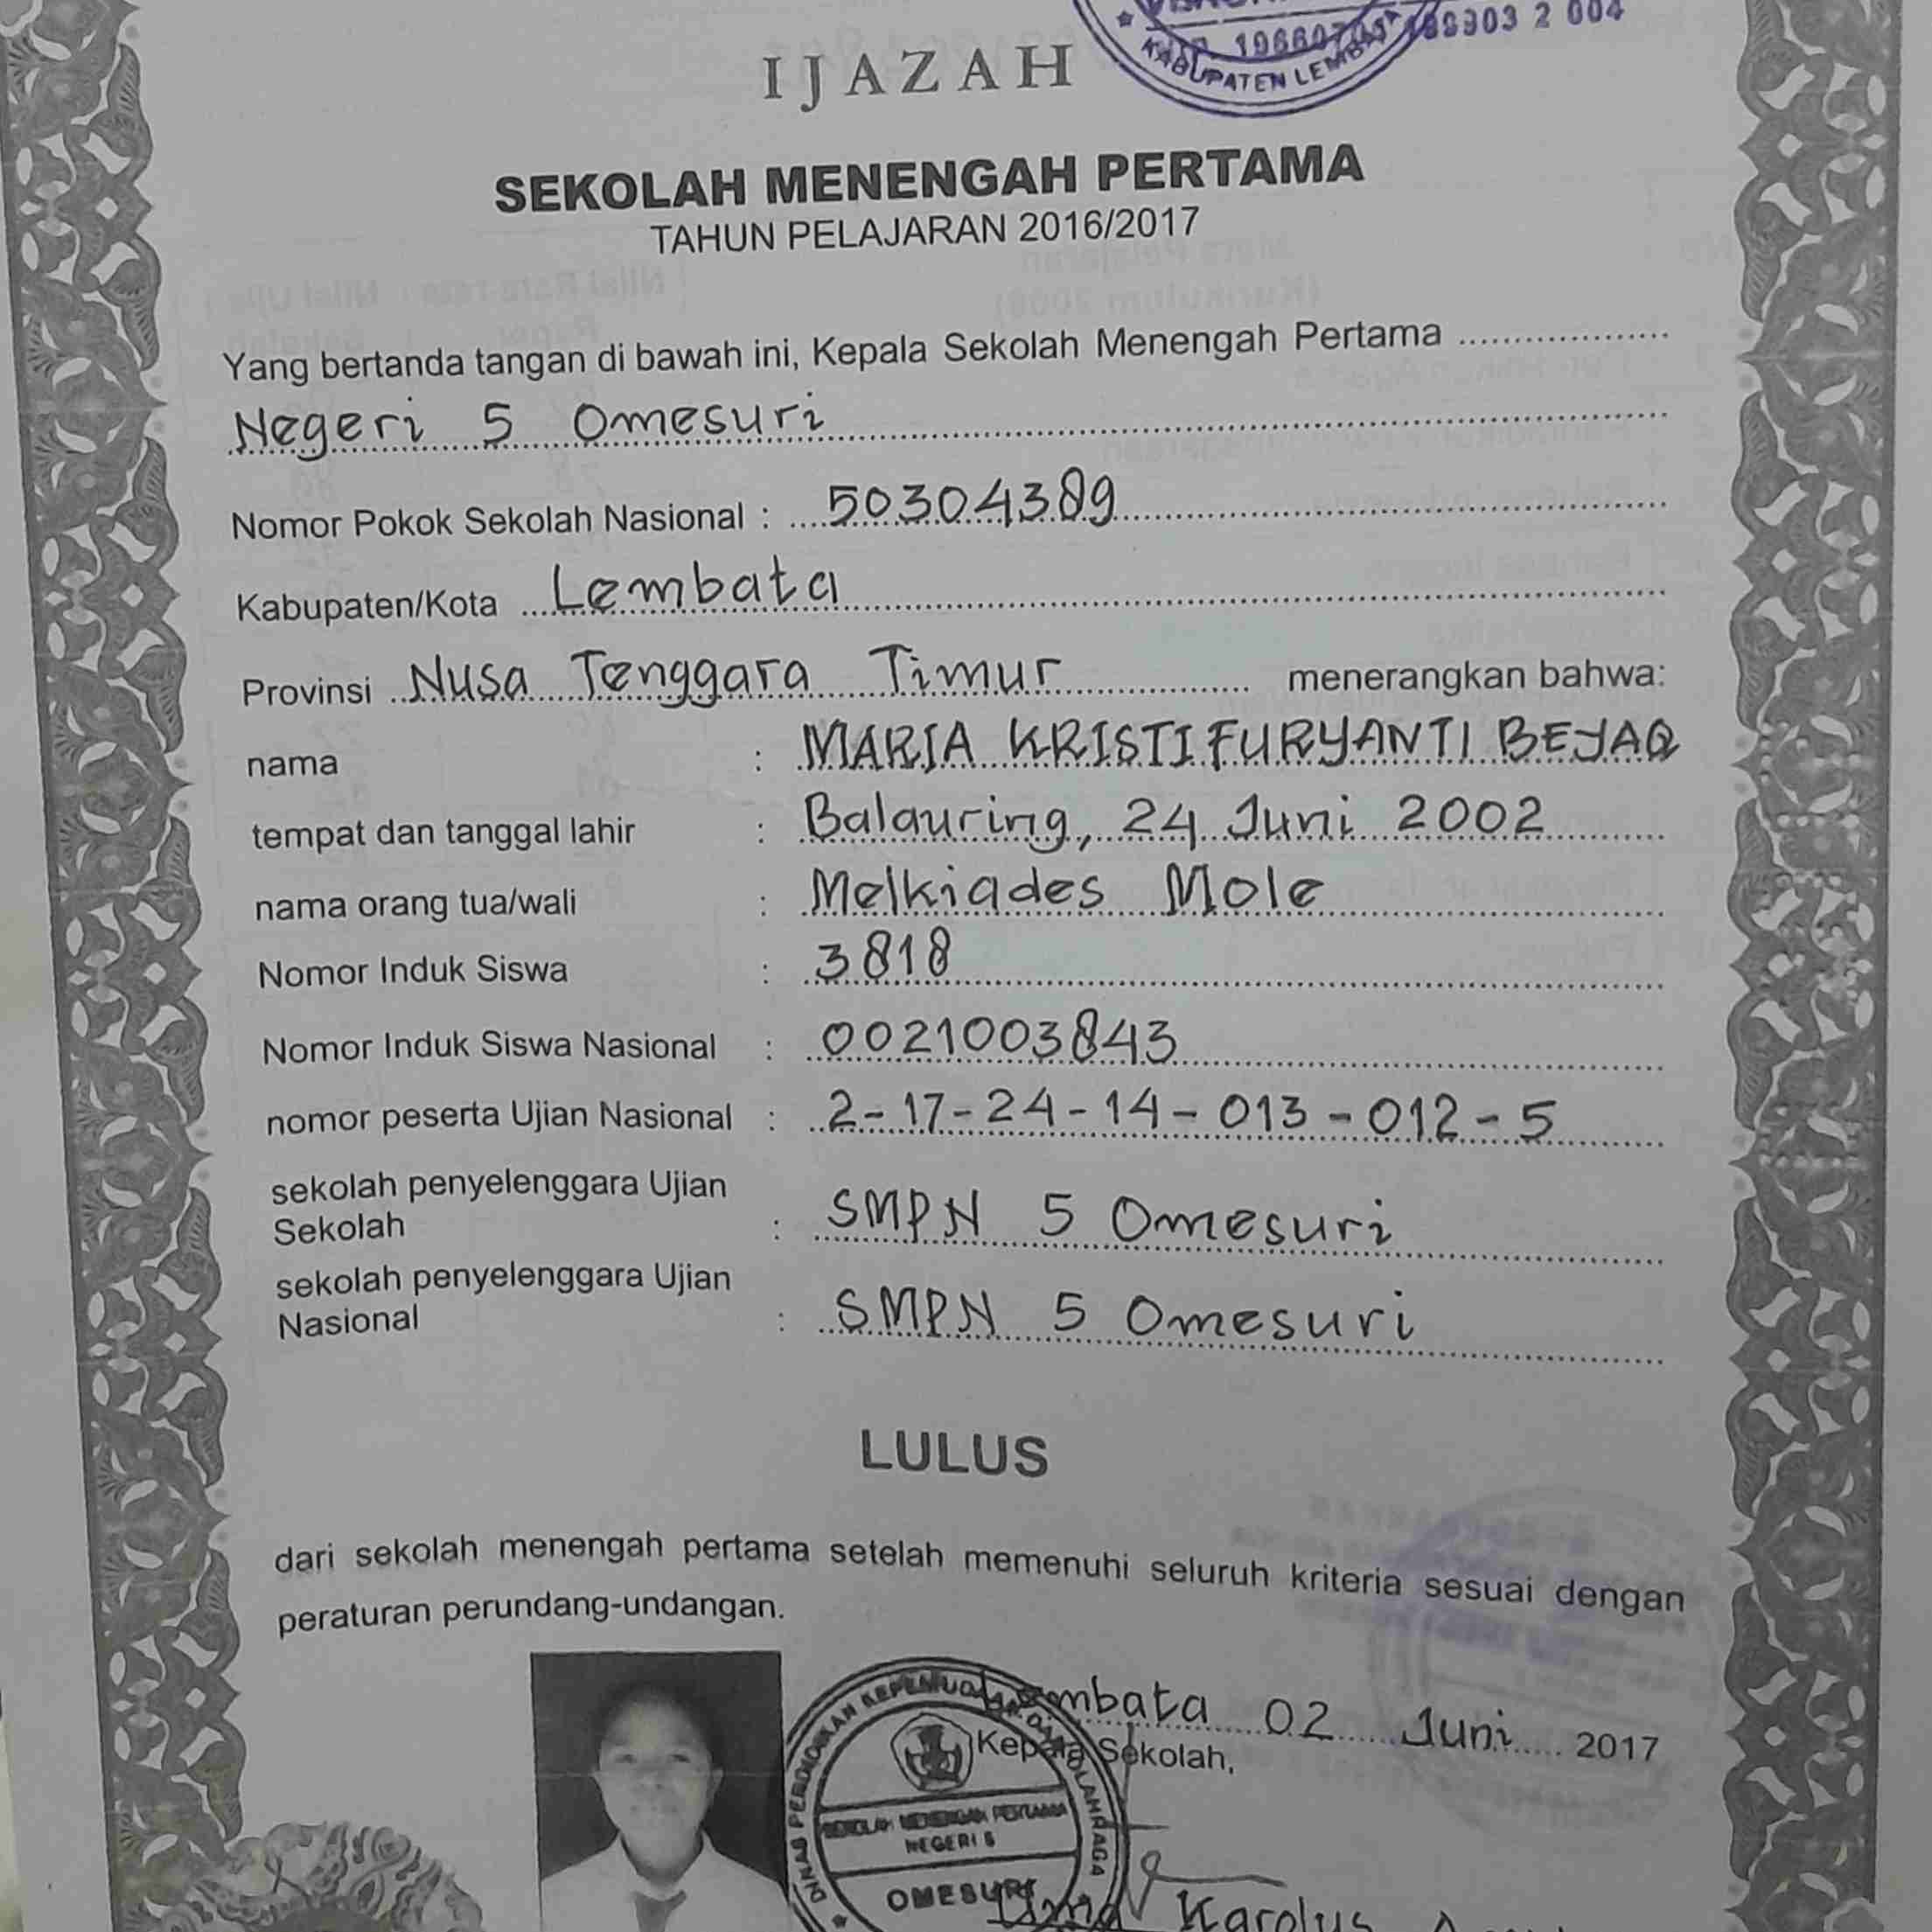 196607051989032004
KABUPATEN LEMBATA
IJAZAH
SEKOLAH MENENGAH PERTAMA
TAHUN PELAJARAN 2016/2017
Yang bertanda tangan di bawah ini, Kepala Sekolah Menengah Pertama
Negeri 5 Omesuri
Nomor Pokok Sekolah Nasional : 50304389
Kabupaten/Kota Lembata
Provinsi Nusa Tenggara Timur menerangkan bahwa:
nama : MARIA KRISTI FURYANTI BEYAQ
tempat dan tanggal lahir : Balauring, 24 Juni 2002
nama orang tua/wali : Melkiades Mole
Nomor Induk Siswa : 3818
Nomor Induk Siswa Nasional : 0021003843
nomor peserta Ujian Nasional : 2-17-24-14-013-012-5
sekolah penyelenggara Ujian
Sekolah : SMPN 5 Omesuri
sekolah penyelenggara Ujian
Nasional : SMPN 5 Omesuri
LULUS
dari sekolah menengah pertama setelah memenuhi seluruh kriteria sesuai dengan
peraturan perundang-undangan.
Lembata 02 Juni 2017
Kepala Sekolah,
DINAS PENDIDIKAN KEPEMUDAAN DAN OLAHRAGA
SEKOLAH MENENGAH PERTAMA
NEGERI 5
OMESURI
Karolus